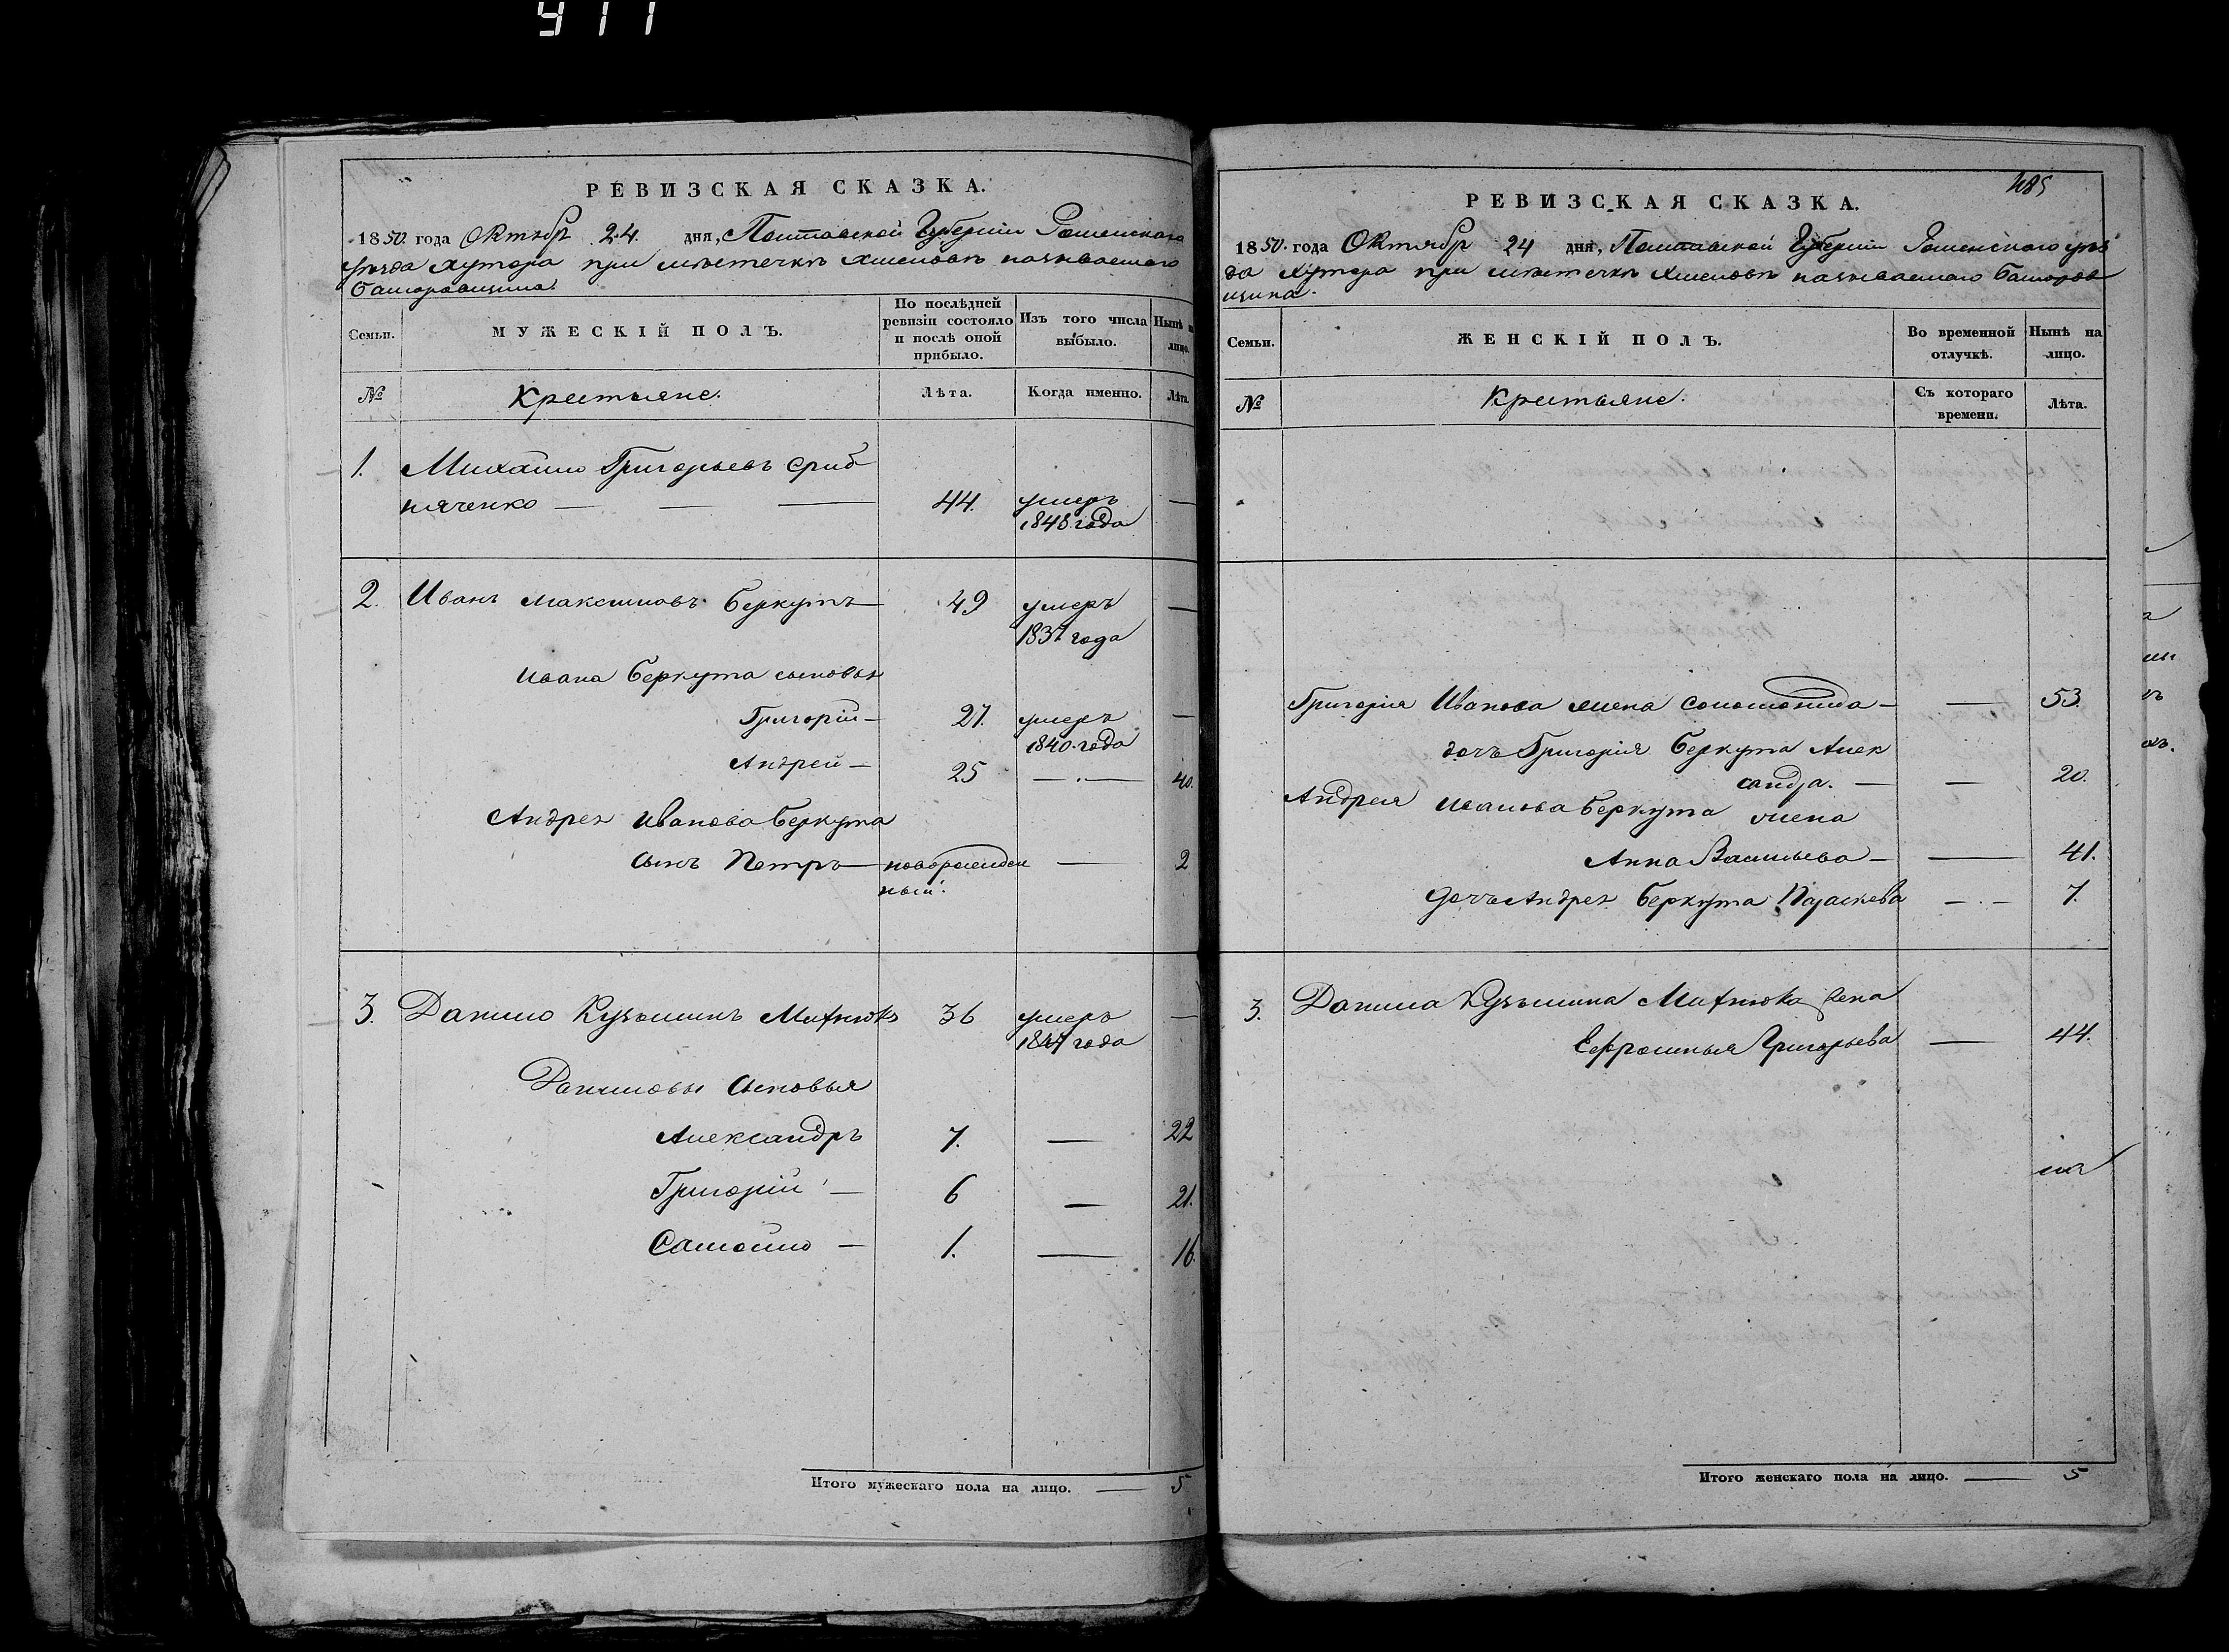 911
РЕВИЗСКАЯ СКАЗКА.
1850. года Октябр 24. дня, Полтавской Губернии Роменскаго
уезда хутора при местечке Хмеловѣ называемаго
МУЖЕСКІЙ ПОЛЪ.
Семьи.
По послѣдней ревизіи состояло и послѣ оной прибыло.
Изъ того числа выбыло.
Нынѣ на лицо.
№
Крестьяне.
Лѣта.
Когда именно.
Лѣта.
1. Михайло Григорьевъ Сриб
няченко — — — 44. умеръ —
1848. года
2. Иванъ Максимовъ Беркутъ — 49 умеръ —
1837 года
Ивана Беркута сыновья
Григорій — 27. умеръ —
1840. года
Андрей — 25 — . — 40.
Андрея Иванова Беркута
сынъ Петръ — новорожден — 2
ный.
3. Данило Кузьминъ Михнюкъ 36 умеръ —
года
Даниловы сыновья
Александръ 7. — 22
Григорій — 6 — 21.
Самойло — 1. — 16.
Итого мужескаго пола на лицо. — 5
485
РЕВИЗСКАЯ СКАЗКА.
1850. года Октябр 24 дня, Полтавской Губернии Роменского уез
да хутора при местечке Хмеловѣ называемаго
щина.
Семьи.
ЖЕНСКІЙ ПОЛЪ.
Во временной отлучкѣ.
Нынѣ на лицо.
№
Крестьяне.
Съ котораго времени.
Лѣта.
Григория Иванова жена Соломонида — — 53.
дочь Григорія Беркута Алек
сандра. — — 20.
Андрея Иванова Беркута жена
Анна Васильева — — 41.
дочь Андрея Беркута Параскева — . — 7.
3. Данила Кузьмина Михнюка жена
Ефросинья Григорьева — 44.
Итого женскаго пола на лицо. — 5